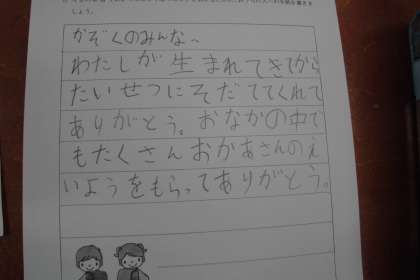 しょう。
かぞくのみんなへ
わたしが生まれてきてから
たいせつにそだててくれて
ありがとう。おなかの中で
もたくさんおかあさんのえ
いようをもらってありがとう。